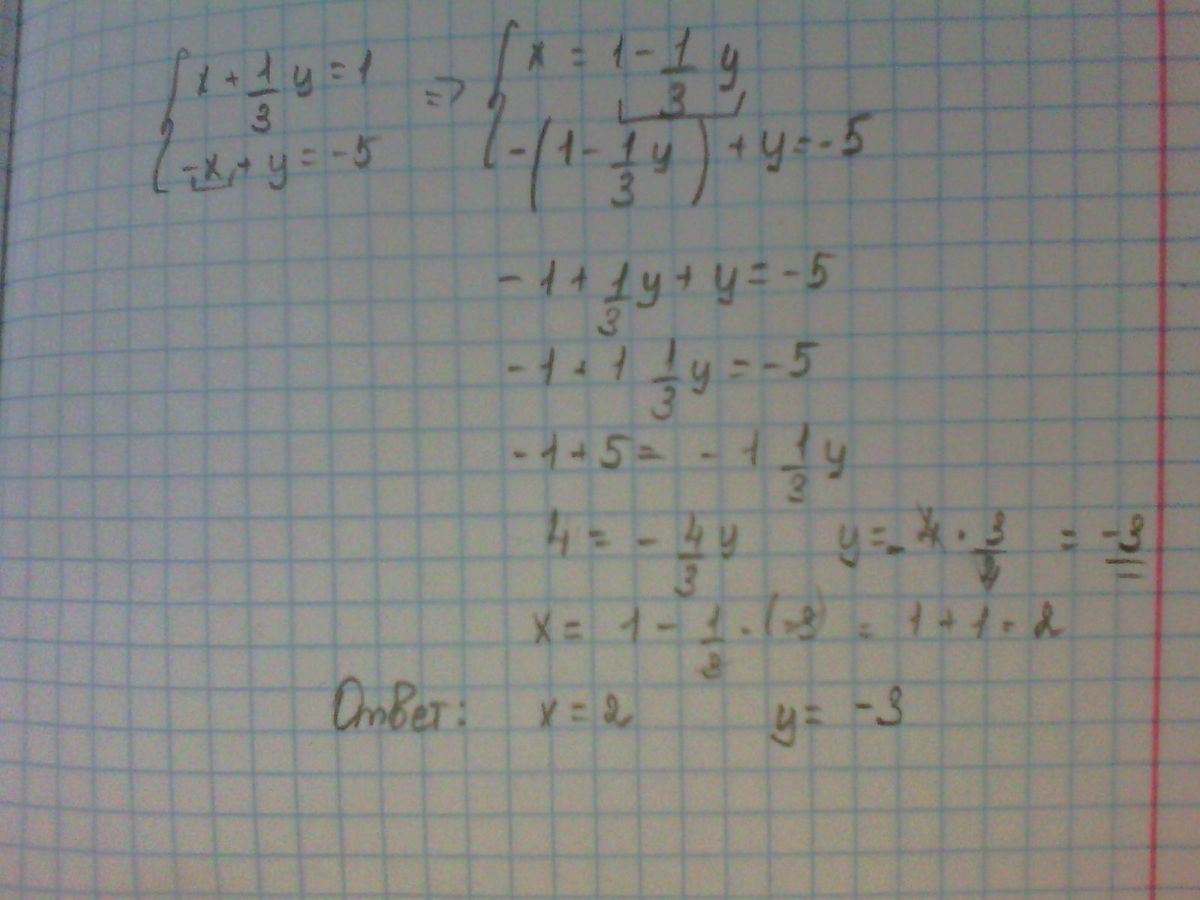 { x + 1/3 y = 1 => { x = 1 - 1/3 y
-x + y = -5 -(1 - 1/3 y) + y = -5
-1 + 1/3 y + y = -5
-1 + 1 1/3 y = -5
-1 + 5 = -1 1/3 y
4 = -4/3 y y = -4 · 3/4 = -3
x = 1 - 1/3 · (-3) = 1 + 1 = 2
Ответ: x = 2 y = -3